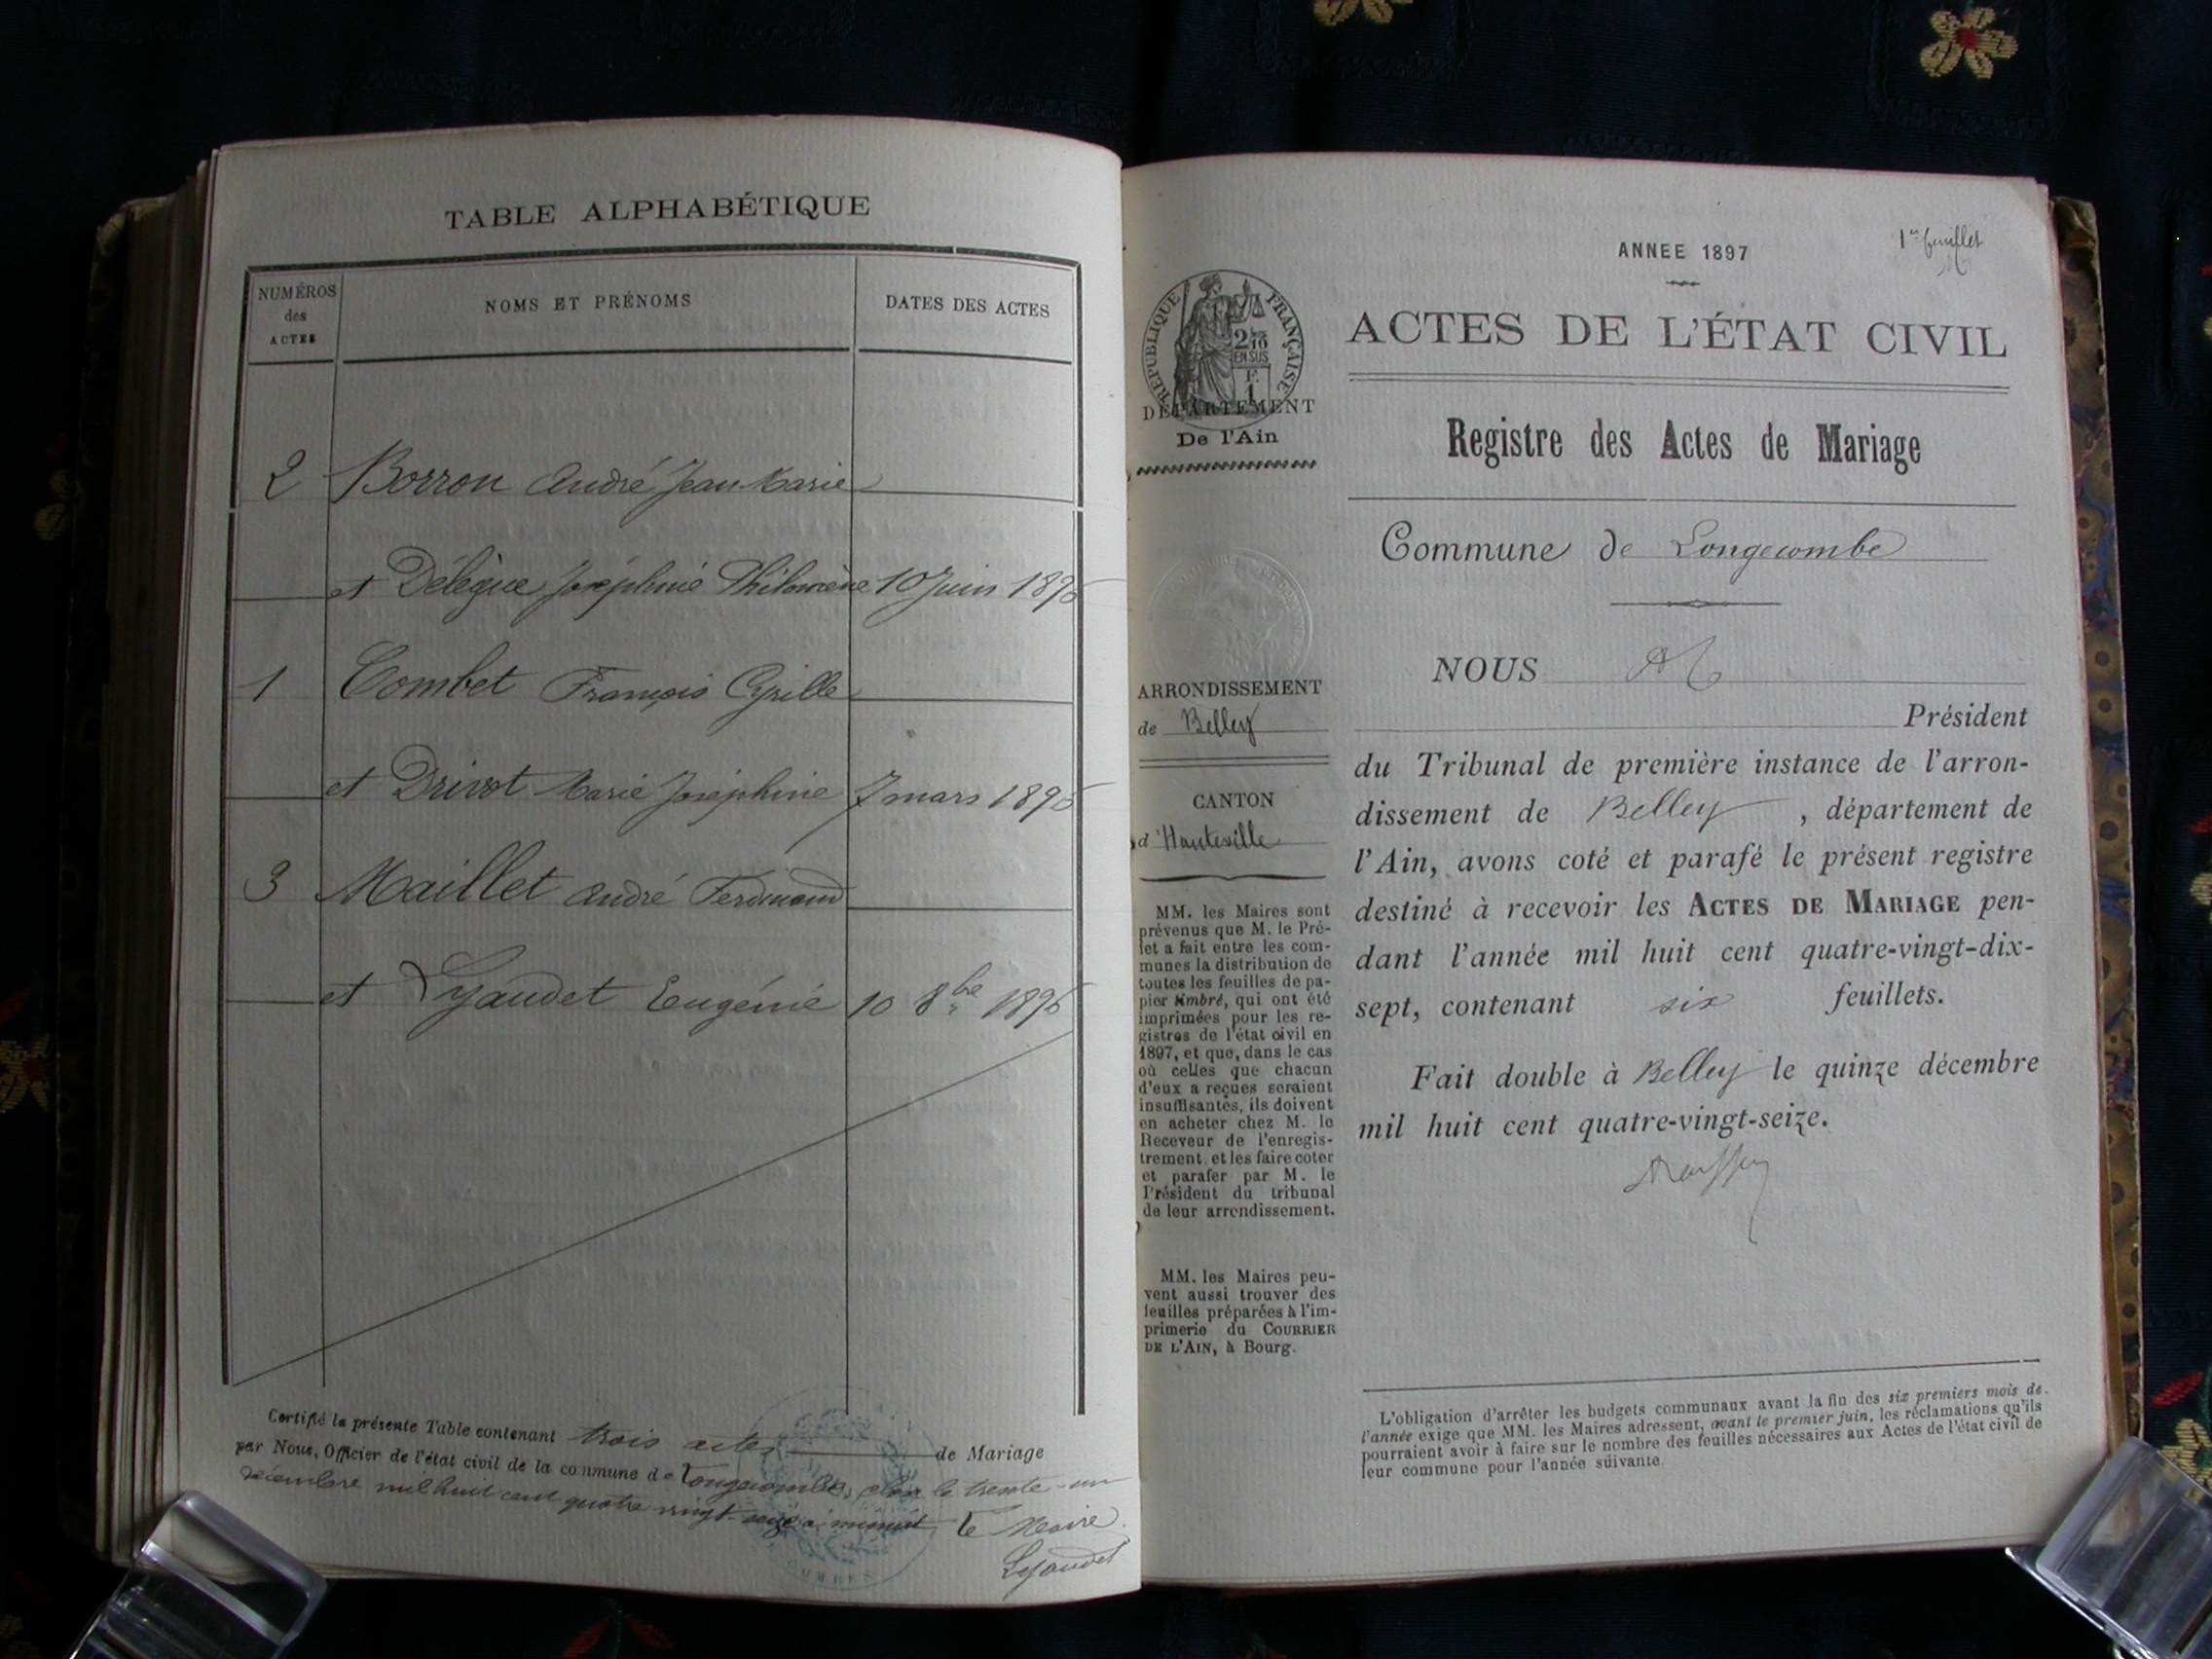 TABLE ALPHABÉTIQUE
NUMÉROS
des
ACTES
NOMS ET PRÉNOMS
DATES DES ACTES
2 Borron André Jean Marie
et Délègue Joséphine Philomène 10 Juin 1896
1 Combet François Cyrille
et Drivot Marie Joséphine 7 mars 1896
3 Maillet André Ferdinand
et Lyaudet Eugénie 10 8bre 1896
Certifié la présente Table contenant trois actes de Mariage
par Nous, Officier de l'état civil de la commune de Longecombe, clos le trente-un
décembre mil huit cent quatre vingt-seize à minuit, le Maire.
Lyaudet
1er feuillet
ANNEE 1897
RÉPUBLIQUE FRANÇAISE
2/10
EN SUS
F.
1
DÉPARTEMENT
De l'Ain
ARRONDISSEMENT
de Belley
CANTON
d'Hauteville
MM. les Maires sont
prévenus que M. le Pré-
fet a fait entre les com-
munes la distribution de
toutes les feuilles de pa-
pier timbré, qui ont été
imprimées pour les re-
gistres de l'état civil en
1897, et que, dans le cas
où celles que chacun
d'eux a reçues seraient
insuffisantes, ils doivent
en acheter chez M. le
Receveur de l'enregis-
trement, et les faire coter
et parafer par M. le
Président du tribunal
de leur arrondissement.
MM. les Maires peu-
vent aussi trouver des
feuilles préparées à l'im-
primerie du COURRIER
DE L'AIN, à Bourg.
ACTES DE L'ÉTAT CIVIL
Registre des Actes de Mariage
Commune de Longecombe
NOUS
Président
du Tribunal de première instance de l'arron-
dissement de Belley, département de
l'Ain, avons coté et parafé le présent registre
destiné à recevoir les ACTES DE MARIAGE pen-
dant l'année mil huit cent quatre-vingt-dix-
sept, contenant six feuillets.
Fait double à Belley le quinze décembre
mil huit cent quatre-vingt-seize.
L'obligation d'arrêter les budgets communaux avant la fin des six premiers mois de
l'année exige que MM. les Maires adressent, avant le premier juin, les réclamations qu'ils
pourraient avoir à faire sur le nombre des feuilles nécessaires aux Actes de l'état civil de
leur commune pour l'année suivante.